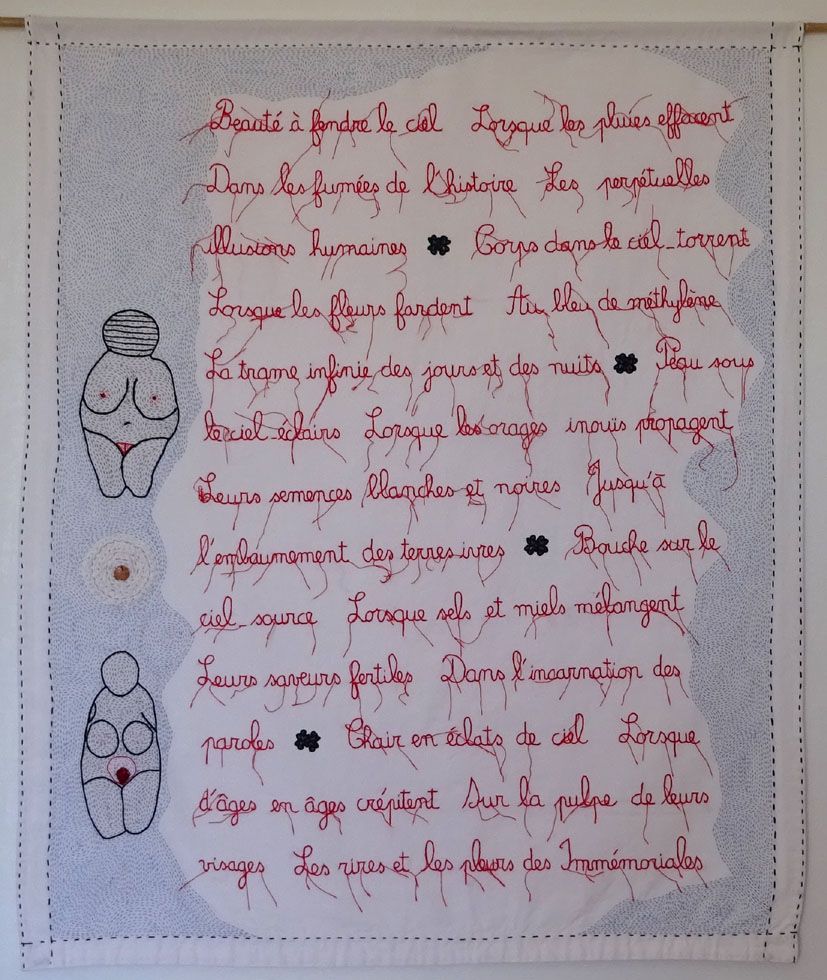 Beauté à fendre le ciel Lorsque les pluies effacent
Dans les fumées de l'histoire Les perpétuelles
illusions humaines Corps dans le ciel-torrent
Lorsque les fleurs fardent Au bleu de méthylène
La trame infinie des jours et des nuits Peau sous
le ciel-éclairs Lorsque les orages inouïs propagent
Leurs semences blanches et noires Jusqu'à
l'embaumement des terres ivres Bouche sur le
ciel-source Lorsque sels et miels mélangent
Leurs saveurs fertiles Dans l'incarnation des
paroles Chair en éclats de ciel Lorsque
d'âges en âges crépitent Sur la pulpe de leurs
visages Les rires et les pleurs des Immémoriales